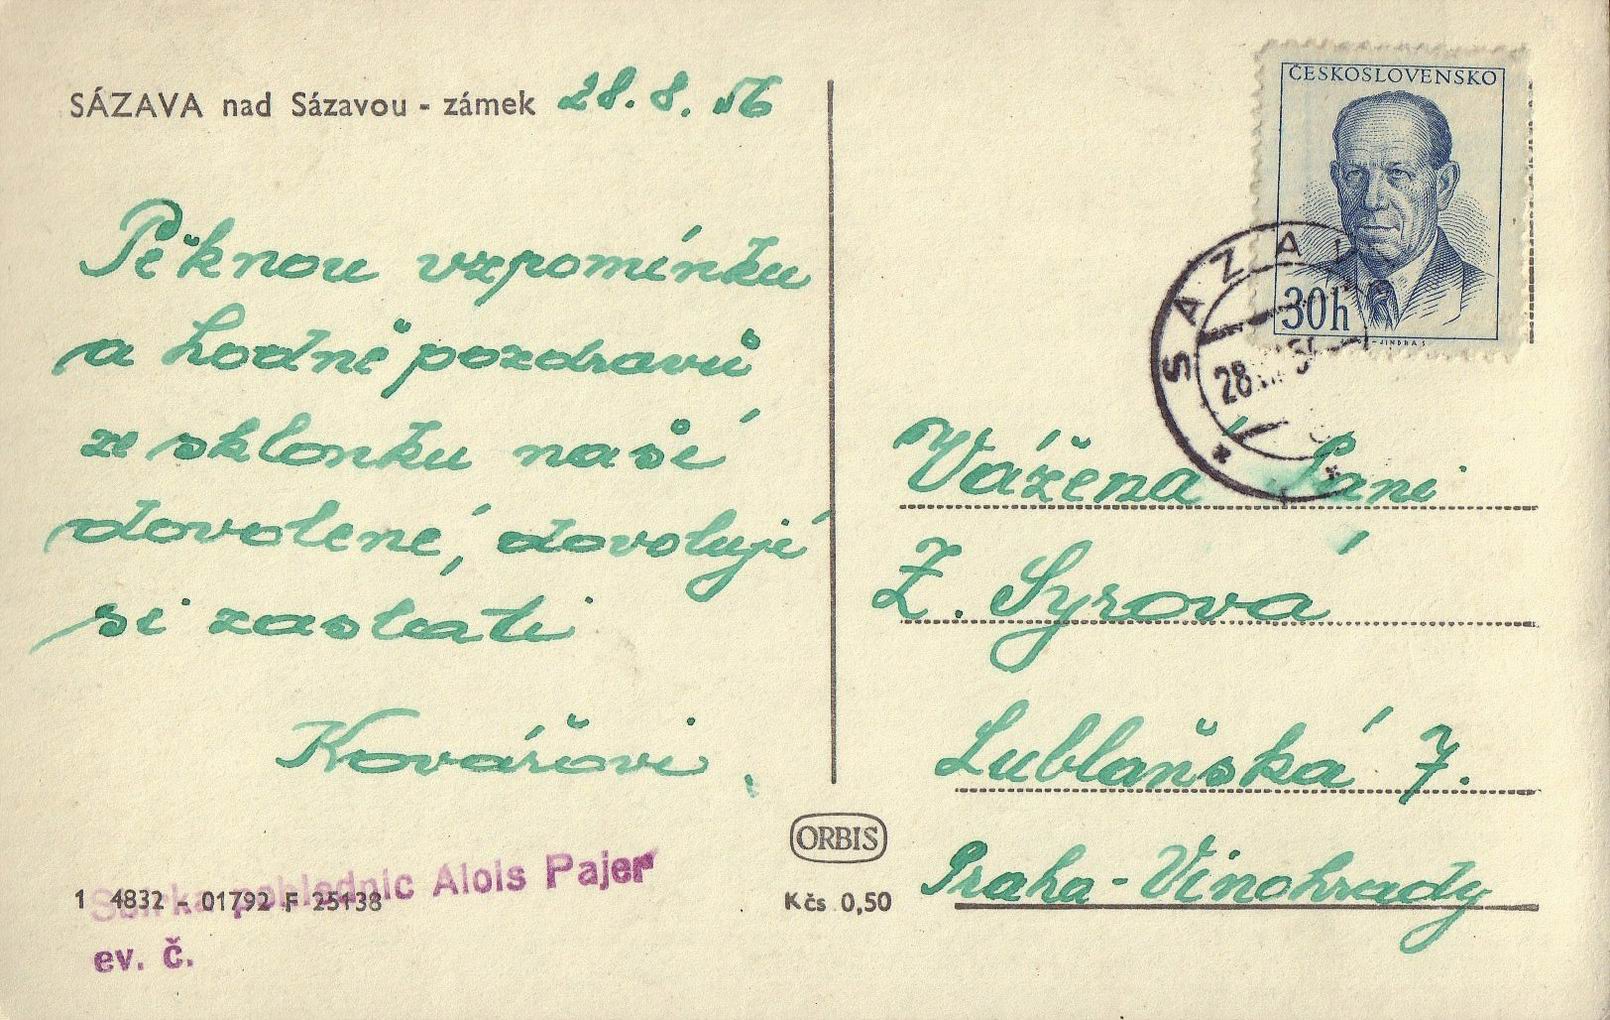 SÁZAVA nad Sázavou - zámek 28. 8. 56
Pěknou vzpomínku
a hodně pozdravů
ze sklonku naší
dovolené, dovolují
si zaslati
Kovářovi
1 4832 - 01792 F 25138
Sbírka pohlednic Alois Pajer
ev. č.
ORBIS
Kčs 0,50
ČESKOSLOVENSKO
30h
SÁZAV
28.
Vážená Paní
Z. Syrová
Lublaňská 7.
Praha - Vinohrady